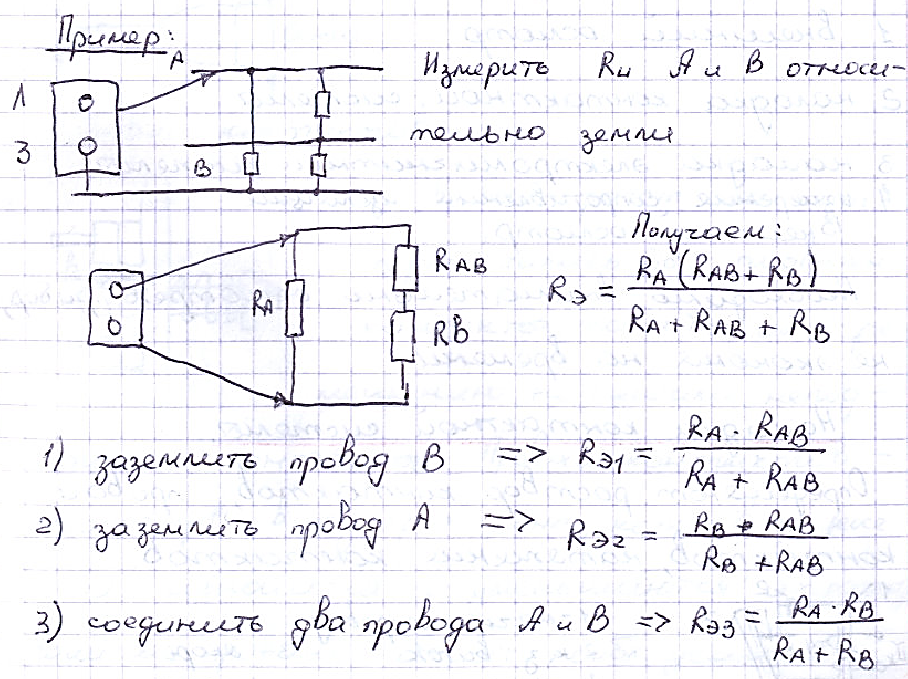 Пример:
A
Л
З
B
Измерить Rи A и B относи-
тельно земли
Получаем:
RA
RAB
RB
RЭ = RA (RAB + RB) / RA + RAB + RB
1) заземлить провод B => RЭ1 = RA · RAB / RA + RAB
2) заземлить провод A => RЭ2 = RB · RAB / RB + RAB
3) соединить два провода A и B => RЭ3 = RA · RB / RA + RB